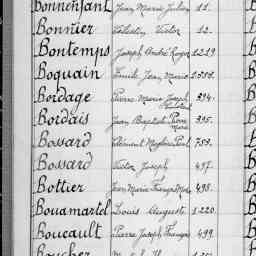 Bonnenfant Jean Marie Julien 11.
Bonnier Célestin Victor 12.
Bontemps Joseph André Roger 1219
Boquain Emile Jean Marie 1558.
Bordage Pierre Marie Joseph 394.
Bordais Jean Baptiste Pierre Marie 395.
Bossard Clément Paul 753.
Bossard Victor Joseph 497.
Bottier Jean Marie François Marie 498.
Bouamartel Louis Auguste 1220.
Boucault Pierre Joseph François 499.
Boucher